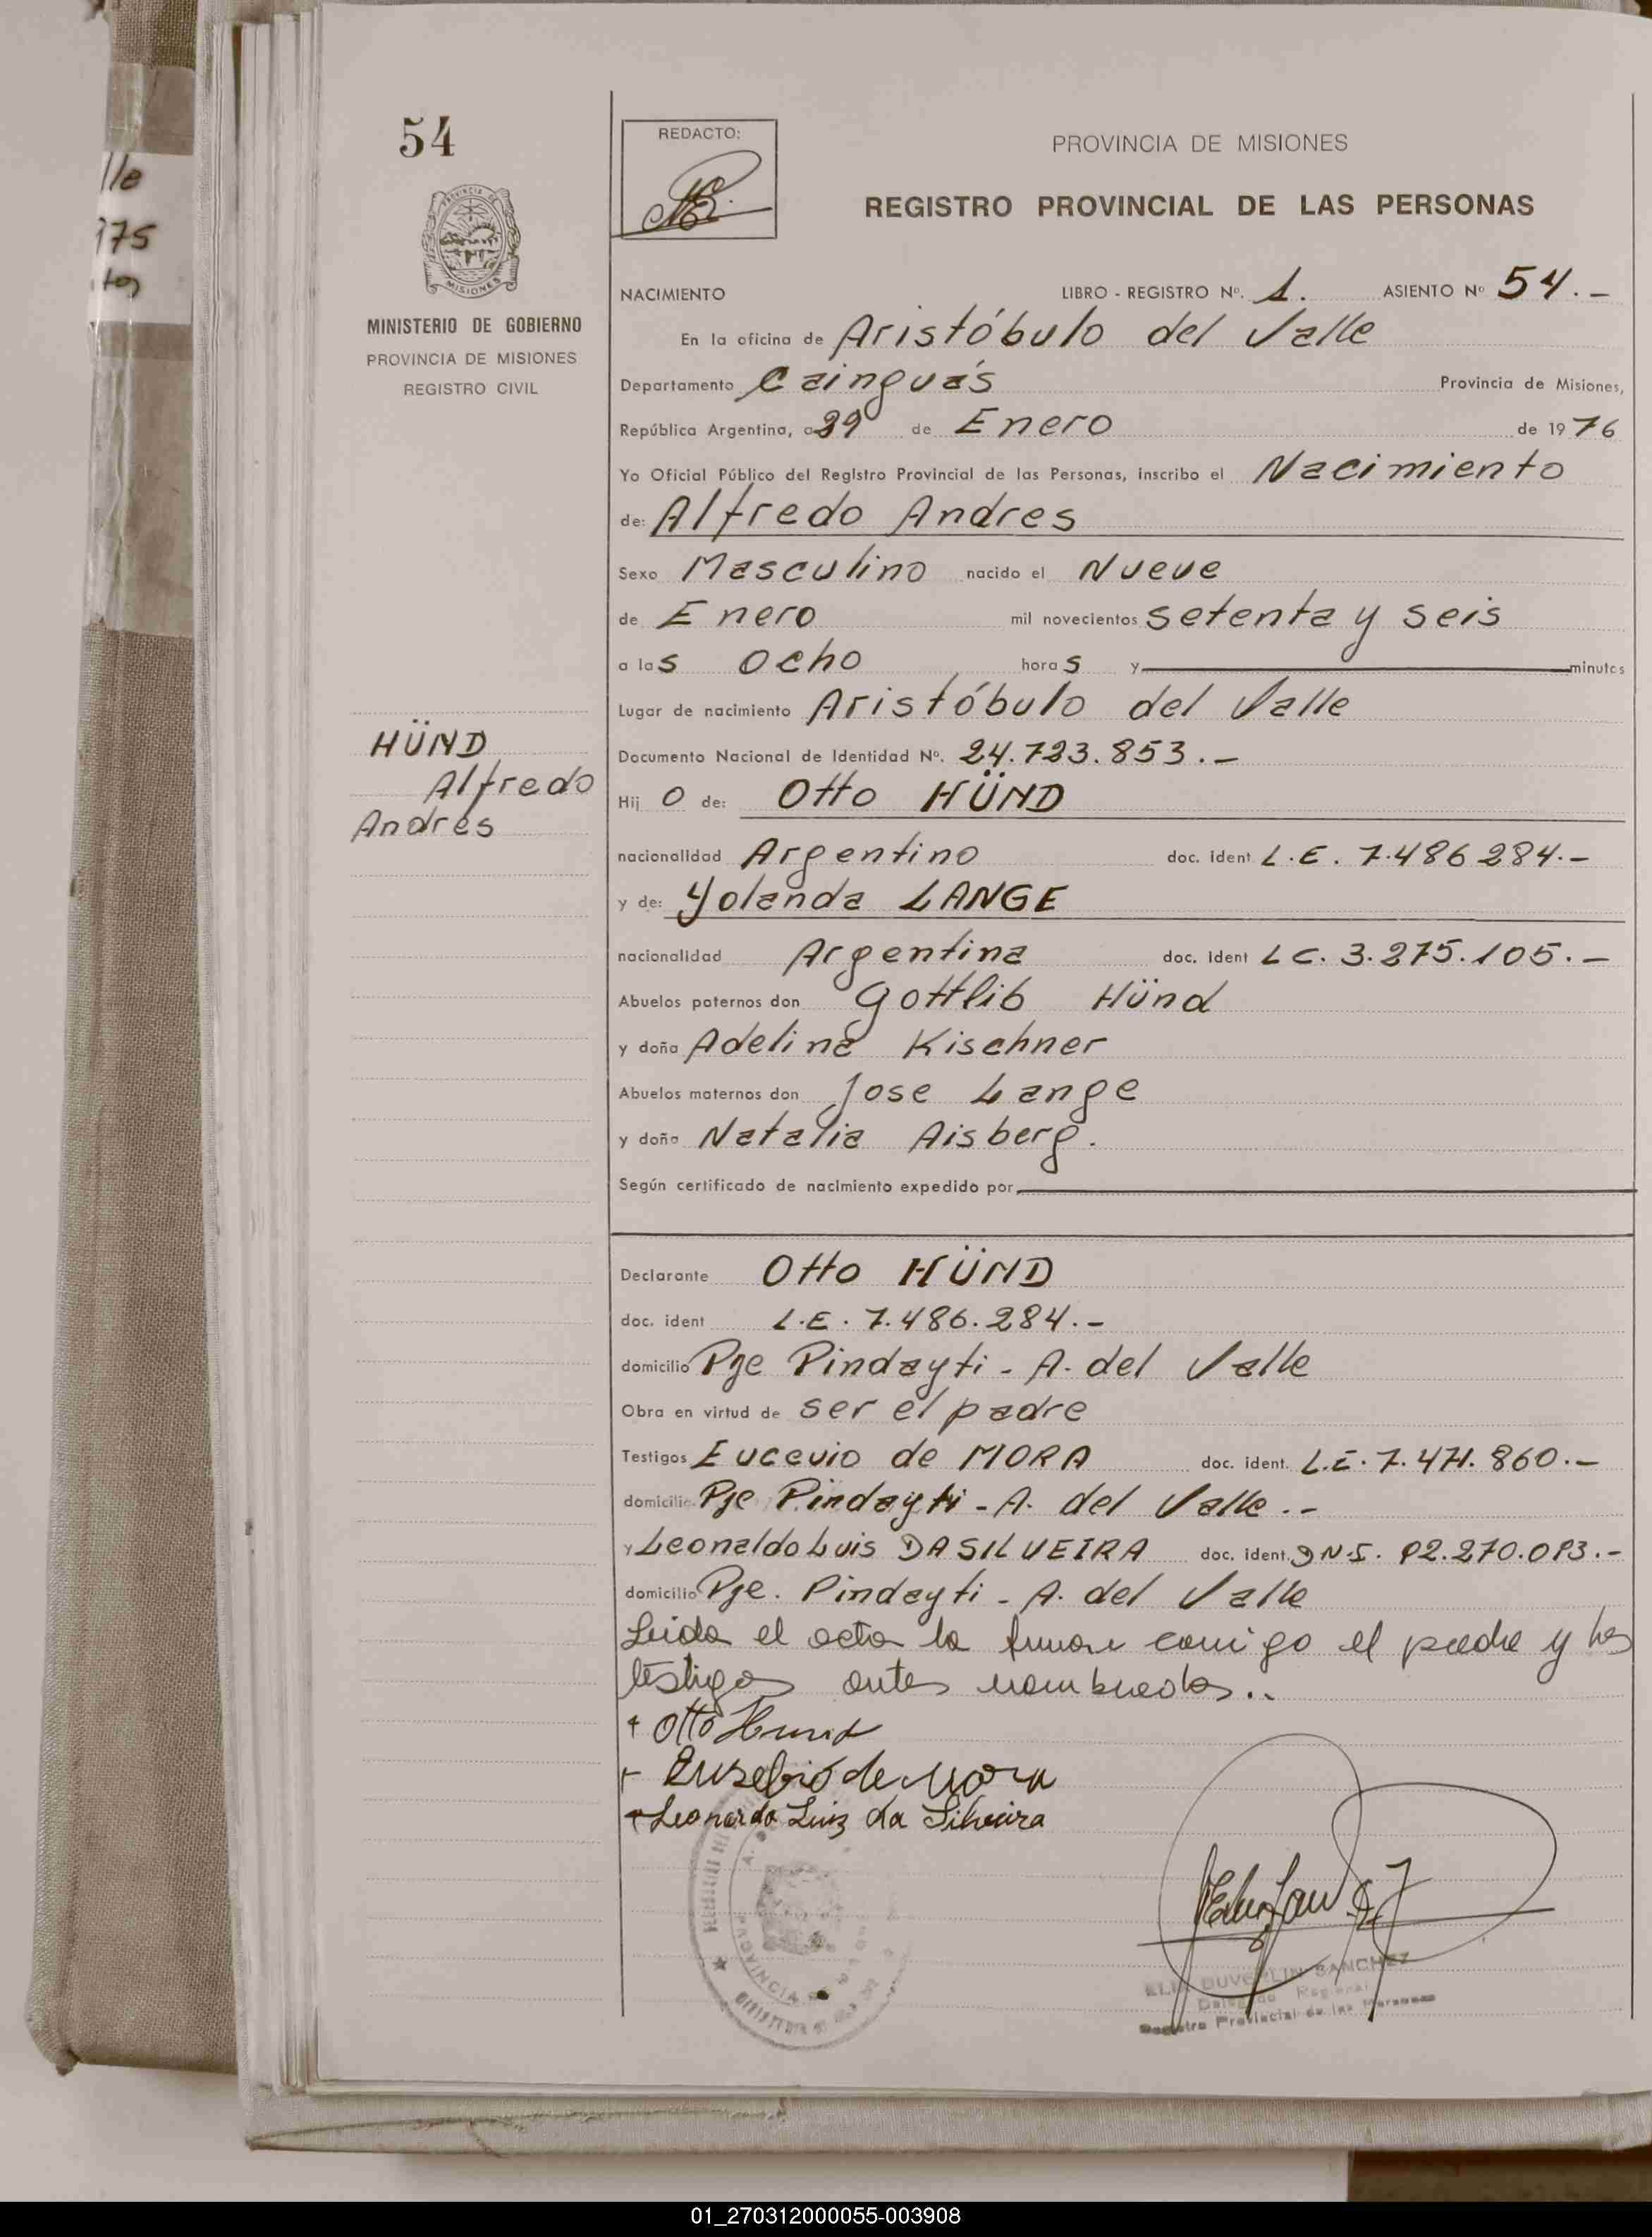 lle
975
tos
54
MINISTERIO DE GOBIERNO
PROVINCIA DE MISIONES
REGISTRO CIVIL
HÜND
Alfredo
Andrés
REDACTO:
PROVINCIA DE MISIONES
REGISTRO PROVINCIAL DE LAS PERSONAS
NACIMIENTO LIBRO - REGISTRO Nº. 1. ASIENTO Nº 54.-
En la oficina de Aristóbulo del Valle
Departamento Cainguás Provincia de Misiones,
República Argentina, a 29 de Enero de 1976
Yo Oficial Público del Registro Provincial de las Personas, inscribo el Nacimiento
de: Alfredo Andres
Sexo Masculino nacido el Nueve
de Enero mil novecientos setenta y seis
a las ocho horas y minutos
Lugar de nacimiento Aristóbulo del Valle
Documento Nacional de Identidad Nº. 24.723.853.-
Hijo de: Otto HÜND
nacionalidad Argentino doc. ident L.E. 7.486284.-
y de: Yolanda LANGE
nacionalidad Argentina doc. ident LC. 3.275.105.-
Abuelos paternos don Gottlib Hünd
y doña Adelina Kischner
Abuelos maternos don Jose Lange
y doña Natalia Aisberg.
Según certificado de nacimiento expedido por
Declarante Otto HÜND
doc. ident L.E. 7.486.284.-
domicilio Pje Pindayti - A. del Valle
Obra en virtud de ser el padre
Testigos Eucevio de MORA doc. ident. L.E. 7.471.860.-
domicilio Pje Pindayti - A. del Valle.-
y Leonaldo Luis DASILVEIRA doc. ident. DNI. 92.270.093.-
domicilio Pje. Pindayti - A. del Valle
Leida el acta la firman conmigo el padre y los
testigos antes nombrados..
+ Otto Hund
+ Eusebio de Mora
+ Leonardo Luiz da Silveira
PROVINCIA
SANCHEZ
Registro Provincial de las Personas
01_270312000055-003908